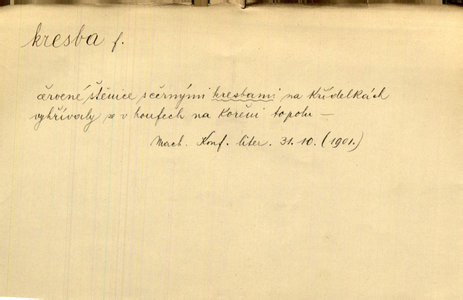 kresba f.
červené štěnice s černými kresbami na křídelkách
vyhřívaly se v houfech na kořeni topolu –
Mach. Konf. liter. 31. 10. (1901.)